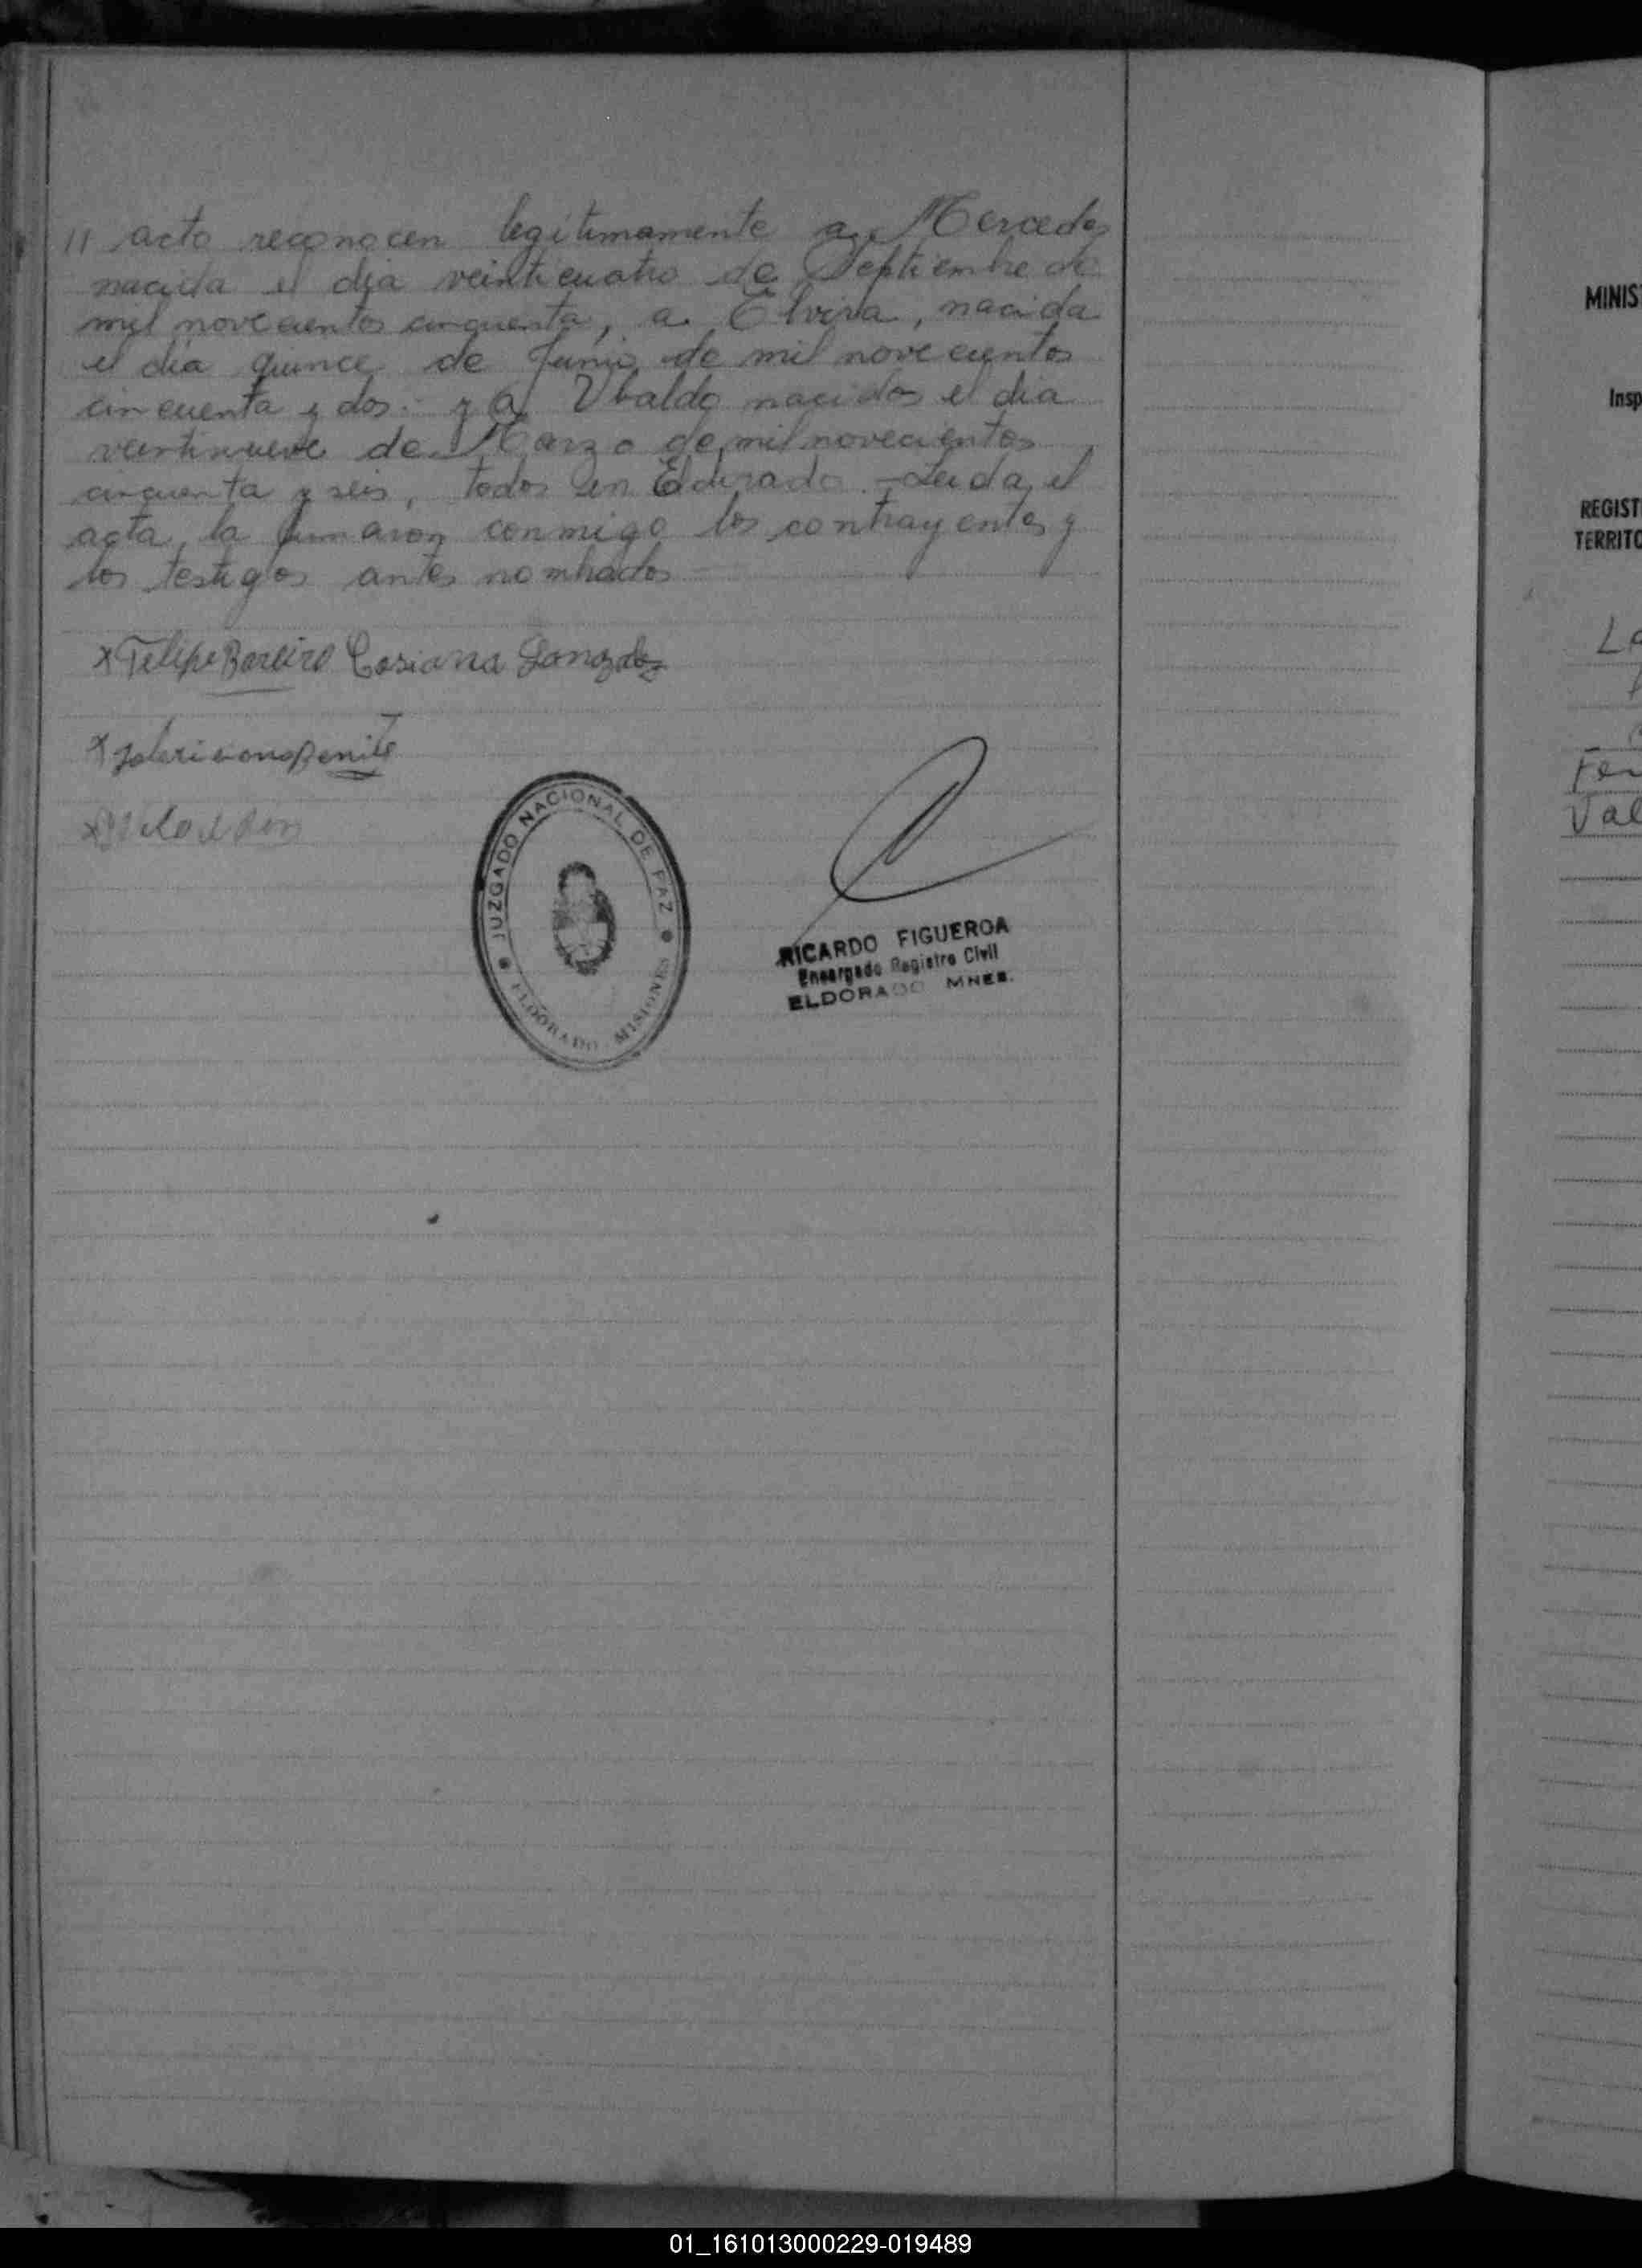 11 acto reconocen legitimamente a Mercedes
nacida el dia veinticuatro de Septiembre de
mil novecientos cinquenta, a Elvira, nacida
el dia quince de Junio de mil novecientos
cincuenta y dos. y a Ubaldo nacidos el dia
veintinueve de Marzo de mil novecientos
cinquenta y seis, todos en Eldorado.- Leida el
acta, la firmaron conmigo los contrayentes y
los testigos antes nombrados
x Felipe Bareiro Casiana Gonzalez
JUZGADO NACIONAL DE PAZ
ELDORADO MISIONES
RICARDO FIGUEROA
Encargado Registro Civil
ELDORADO MNES.
MINIS
Insp
REGIST
TERRITO
La
Fer
Val
01_161013000229-019489